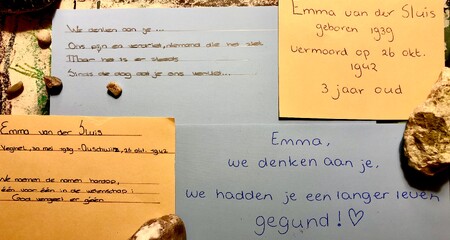 We denken aan je...
Ons pijn en verdriet, niemand die het ziet
Maar het is er steeds
Sinds de dag dat je ons verliet...
Emma van der Sluis
geboren 1939
vermoord op 26 okt.
1942
3 jaar oud
Emma van der Sluis
Veghel, 30 mei 1939 - Auschwitz, 26 okt. 1942
We noemen de namen hardop,
één voor één in de wetenschap:
God vergeet er geen
Emma,
we denken aan je,
we hadden je een langer leven
gegund! ♡